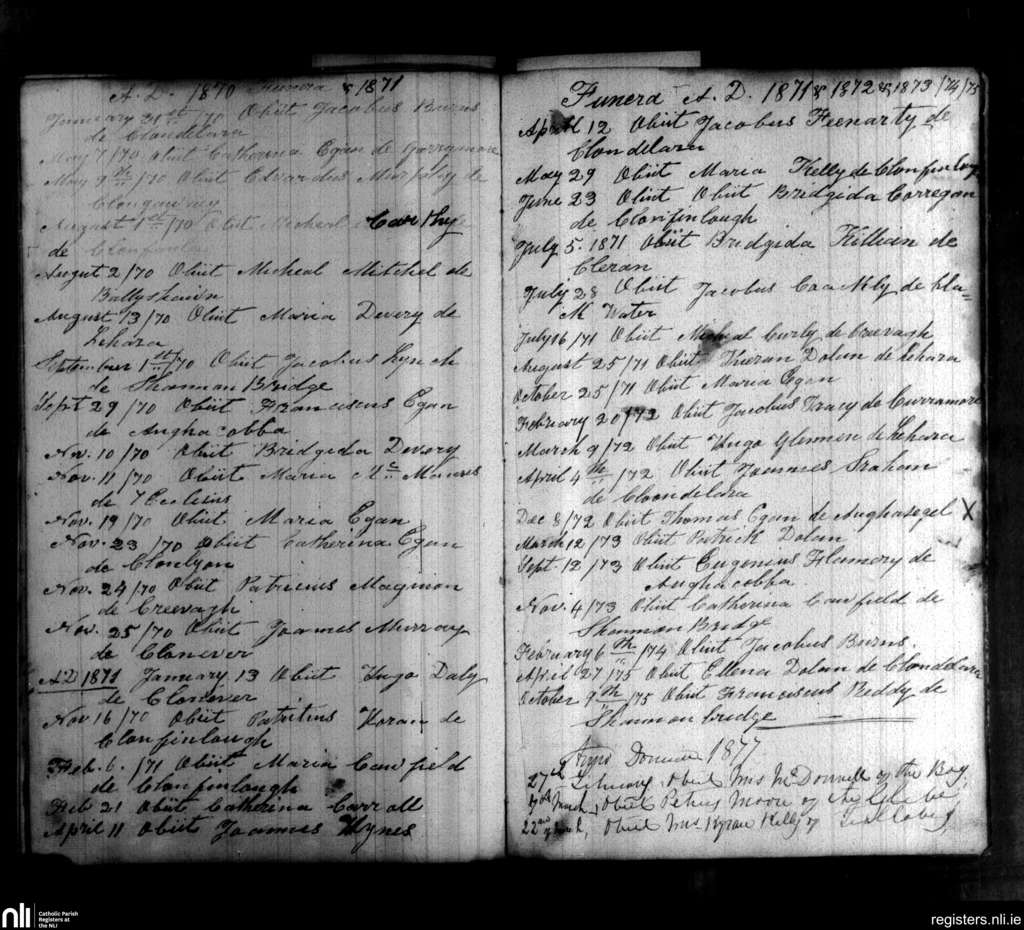 A.D. 1870 Funera & 1871
January 31st /70 Obiit Jacobus Burns
de Clondelara
May 7/70 Obiit Catherina Egan de
May 9th /70 Obiit Edvardus Murphy de
August 1st /70 Obiit Micheal Carthy
de Clonfinlo
August 2/70 Obiit Micheal Mitchel de
August 13/70 Obiit Maria Devery de
Lehara
September 1st /70 Obiit Jacobus Lynch
de Shannon Bridge
Sept 29/70 Obiit Franciscus Egan
de Aughacobba
Nov. 10/70 Obiit Bridgida Devery
Nov. 11/70 Obiit Maria Mc Manus
de 7 Eclesiis
Nov. 19/70 Obiit Maria Egan
Nov. 23 /70 Obiit Catherina Egan
de Clonlyon
Nov. 24/70 Obiit Patricius
de Creevagh
Nov. 25/70 Obiit Joannes Murray
de Clonever
AD 1871 January 13 Obiit Hugo Daly
de Clonever
Nov 16/70 Obiit Patritius Horan de
Clonfinlough
Feb. 6. /71 Obiit Maria Cawfield
de Clonfinlough
Feb 21 Obiit Catherina Carroll
April 11 Obiit Joannes Hynes
Funera A.D. 1871 & 1872 & 1873 /74/75
April 12 Obiit Jacobus Fienarty de
Clondelara
May 29 Obiit Maria Kelly de Clonfinloug
June 23 Obiit Obiit Bridgida Corregan
de Clonfinlough
July 5. 1871 Obiit Bridgida Killian de
Cleran
July 28 Obiit Jacobus de bla=
k Water
July 16/71 Obiit Micheal Curly de Creevagh
August 25/71 Obiit Kieran Dolan de Lehara
October 25/71 Obiit Maria Egan
February 20/72 Obiit Jacobus Tracy de Curramore
March 9/72 Obiit Hugo Glennen de Lehara
April 4th /72 Obiit Joannes Graham
de Cloondelara
Dec 8/72 Obiit Thomas Egan de X
March 12/73 Obiit Patrick Dolan
Sept. 12/73 Obiit Eugenius Flannery de
Aughacobba
Nov. 4/73 Obiit Catherina Cawfield de
Shannon Bridge
February 6th /74 Obiit Jacobus Burns.
April 27/75 Obiit Ellena Dolan de Clondelara
October 9th /75 Obiit Franciscus Reddy de
Shannon bridge
Anno Domini 1877
27th February, Obiit Mrs McDonnell of the Bog,
March, Obiit Petrus Moore of the Glebe
22nd of March, Obiit Mrs Kyran Kelly of
nli Catholic Parish
Registers at
the NLI
registers.nli.ie